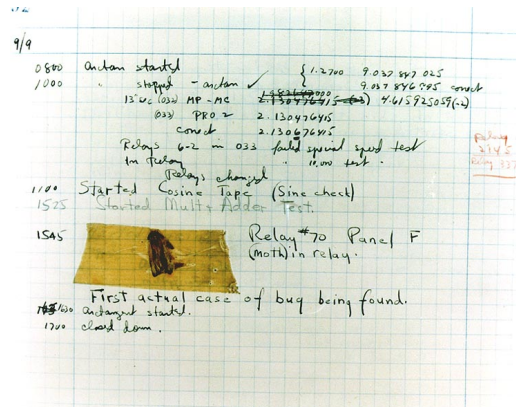 9/9
0800 antan started { 1.2700 9.037 847 025
1000 " stopped - antan ✓ 9.037 846 995 conect
13"uc (032) MP-MC 2.130476415 4.615925059(-2)
(033) PRO 2 2.130476415
conect 2.130676415
Relays 6-2 in 033 failed special speed test
in relay " 10.000 test.
Relays changed
1100 Started Cosine Tape (Sine check)
1525 Started Mult+Adder Test.
1545 Relay #70 Panel F
(moth) in relay.
First actual case of bug being found.
antangent started.
1700 closed down.
Relay